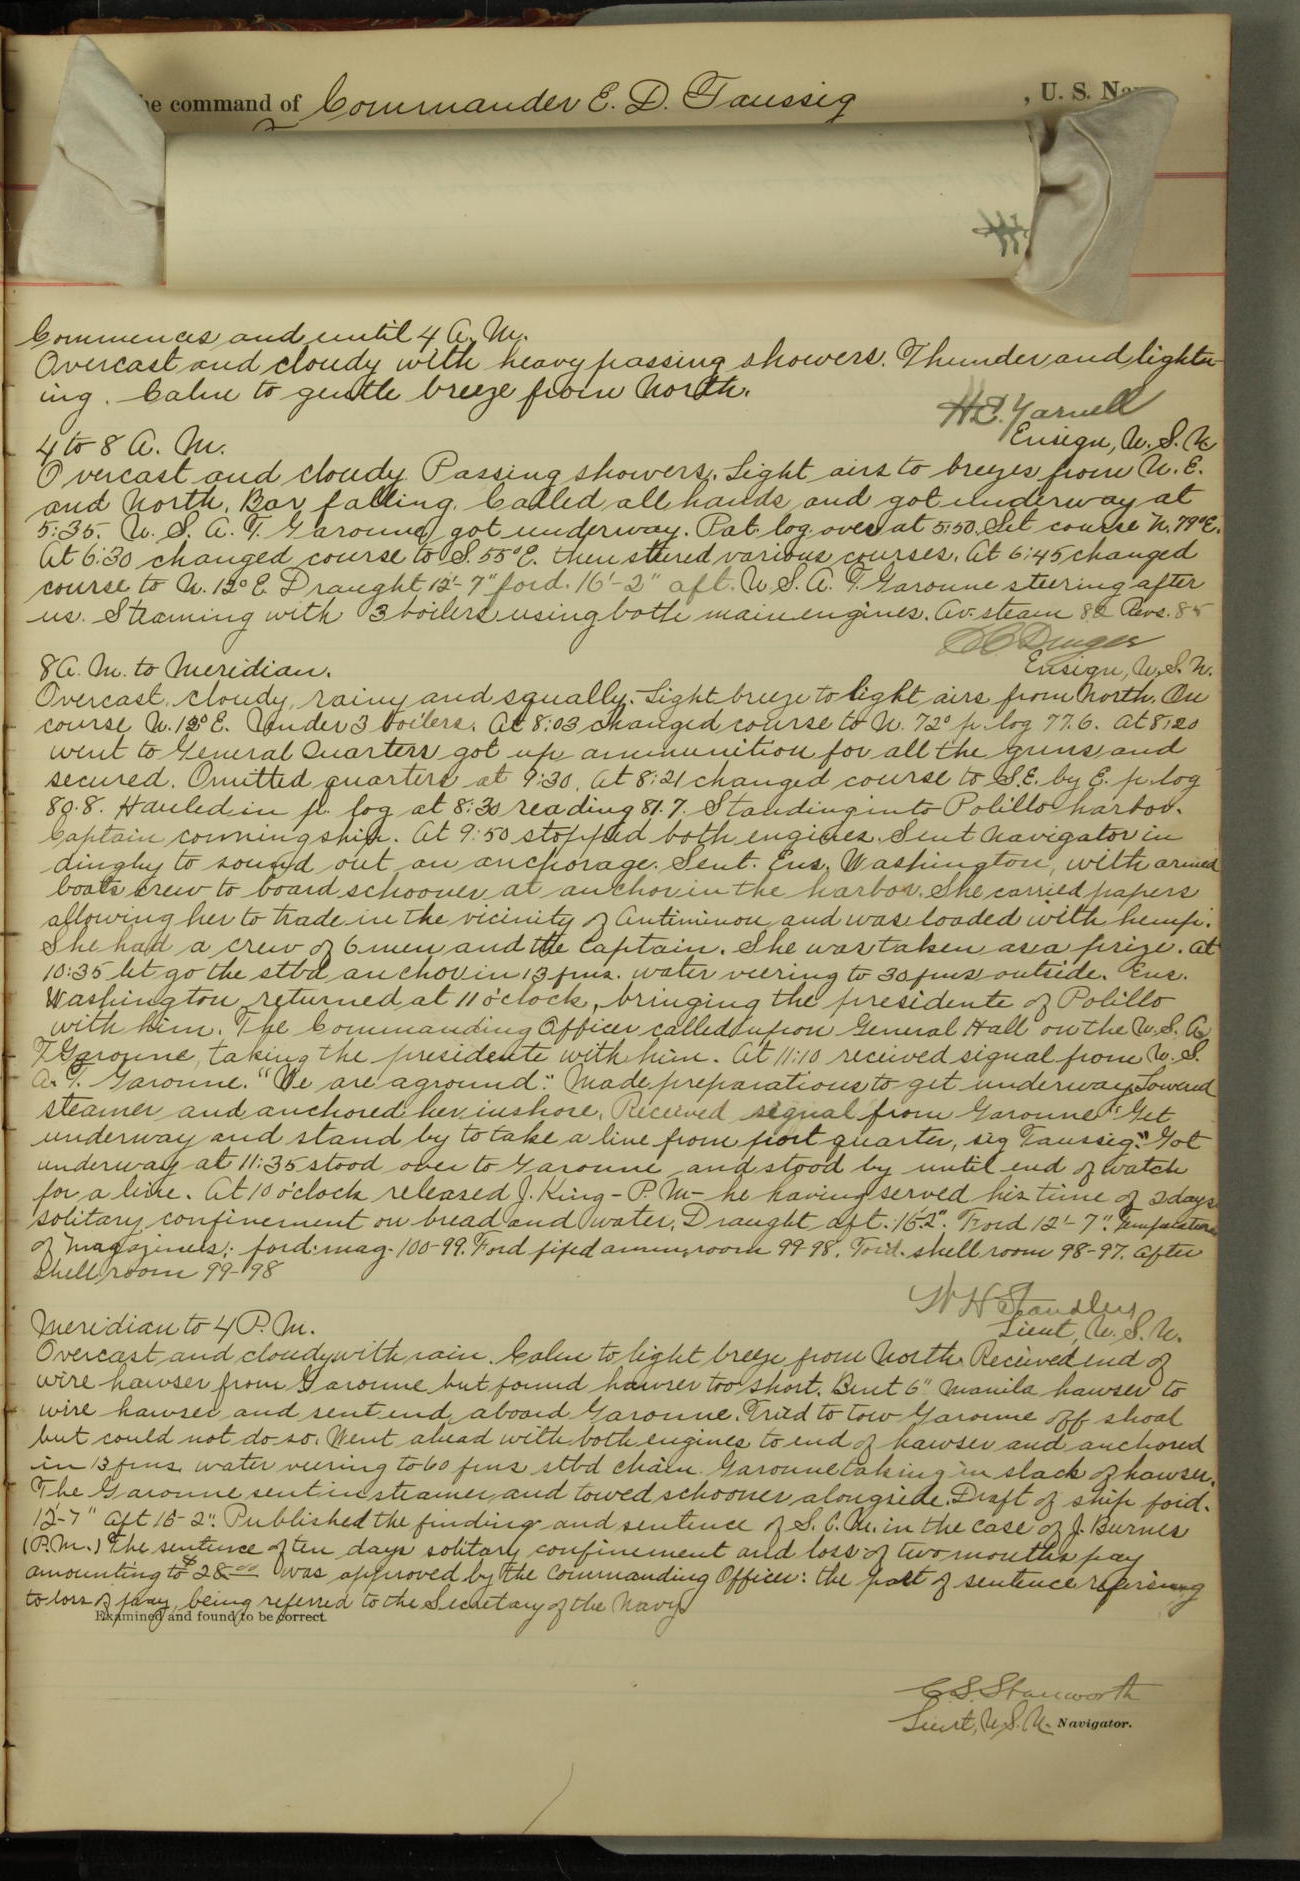 he command of Commander E. D. Taussig , U. S. Na
Commences and until 4 A. M.
Overcast and cloudy with heavy passing showers. Thunder and lightn-
ing. Calm to gentle breeze from North.
H. E. Yarnell
Ensign, U. S. N.
4 to 8 A. M.
Overcast and cloudy. Passing showers. Light airs to breezes from N. E.
and North. Bar falling. Called all hands and got underway at
5:35. U. S. A. T. Garonne got underway. Pat. log over at 5:50. Set course N. 79° E.
At 6:30 changed course to S. 55° E. then steered various courses. At 6:45 changed
course to N. 12° E. Draught 12'-7" ford. 16'-2" aft. U. S. A. T. Garonne steering after
us. Steaming with 3 boilers using both main engines. Av. steam 82 Revs. 85
Ensign, U. S. N.
8 A. M. to Meridian.
Overcast, cloudy, rainy and squally. Light breeze to light airs from North. On
course N. 12° E. Under 3 boilers. At 8:03 changed course to N. 72° p. log 77.6. At 8:20
went to General Quarters got up ammunition for all the guns and
secured. Omitted quarters at 9:30. At 8:21 changed course to S.E. by E. p. log
80.8. Hauled in p. log at 8:30 reading 81.7. Standing into Polillo harbor.
Captain conning ship. At 9:50 stopped both engines. Sent Navigator in
dinghy to sound out an anchorage. Sent Ens. Washington, with armed
boats crew to board schooner at anchor in the harbor. She carried papers
allowing her to trade in the vicinity of Antiminou and was loaded with hemp.
She had a crew of 6 men and the Captain. She was taken as a prize. At
10:35 let go the stbd anchor in 13 fms. water veering to 30 fms outside. Ens.
Washington returned at 11 o'clock, bringing the presidente of Polillo
with him. The Commanding Officer called upon General Hall on the U. S. A.
T. Garonne, taking the presidente with him. At 11:10 received signal from U. S.
A. T. Garonne. "We are aground". Made preparations to get underway, Lowered
steamer and anchored her inshore. Received signal from Garonne "Get
underway and stand by to take a line from port quarter, sig Taussig." Got
underway at 11:35 stood over to Garonne and stood by until end of watch
for a line. At 10 o'clock released J. King - P. M - he having served his time of 2 days
solitary confinement on bread and water. Draught aft. 16'2". Ford 12'-7". Temperatures
of Magazines: ford. mag. 100-99. Ford fixed ammn, room 99-98. Ford. shell room 98-97. After
shell room 99-98
W H Standley
Lieut, U. S. N.
Meridian to 4 P. M.
Overcast and cloudy with rain. Calm to light breeze from North. Received end of
wire hawser from Garonne but found hawser too short. Bent 6" Manila hawser to
wire hawser and sent end aboard Garonne. Tried to tow Garonne off shoal
but could not do so. Went ahead with both engines to end of hawser and anchored
in 13 fms. water veering to 60 fms stbd chain. Garonne taking in slack of hawser.
The Garonne sent in steamer and towed schooner alongside. Draft of ship ford.
12'-7" aft 16'-2". Published the finding and sentence of S. C. M. in the case of J. Burnes
(P. M.) The sentence of ten days solitary confinement and loss of two months pay
amounting to $28.00 was approved by the Commanding Officer: the part of sentence
to loss of pay, being referred to the Secretary of the Navy
Examined and found to be correct
C. S. Stanworth
Lieut, U. S. N. Navigator.